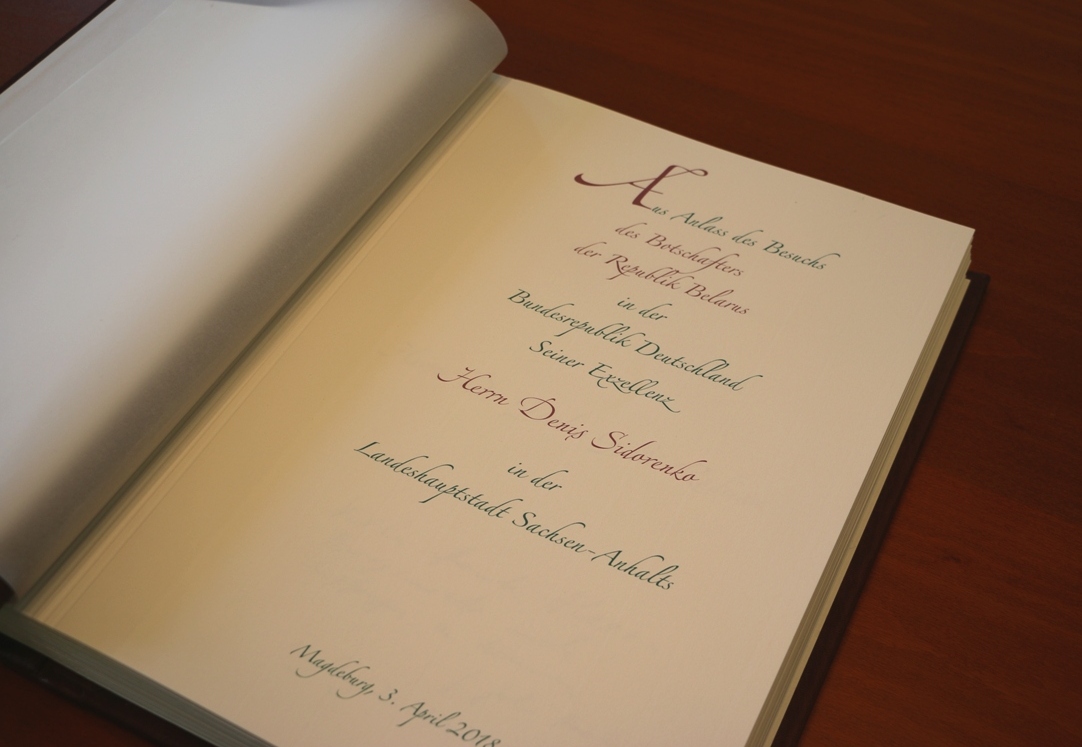 Aus Anlass des Besuchs
des Botschafters
der Republik Belarus
in der
Bundesrepublik Deutschland
Seiner Exzellenz
Herrn Denis Sidorenko
in der
Landeshauptstadt Sachsen-Anhalts
Magdeburg, 3. April 2018